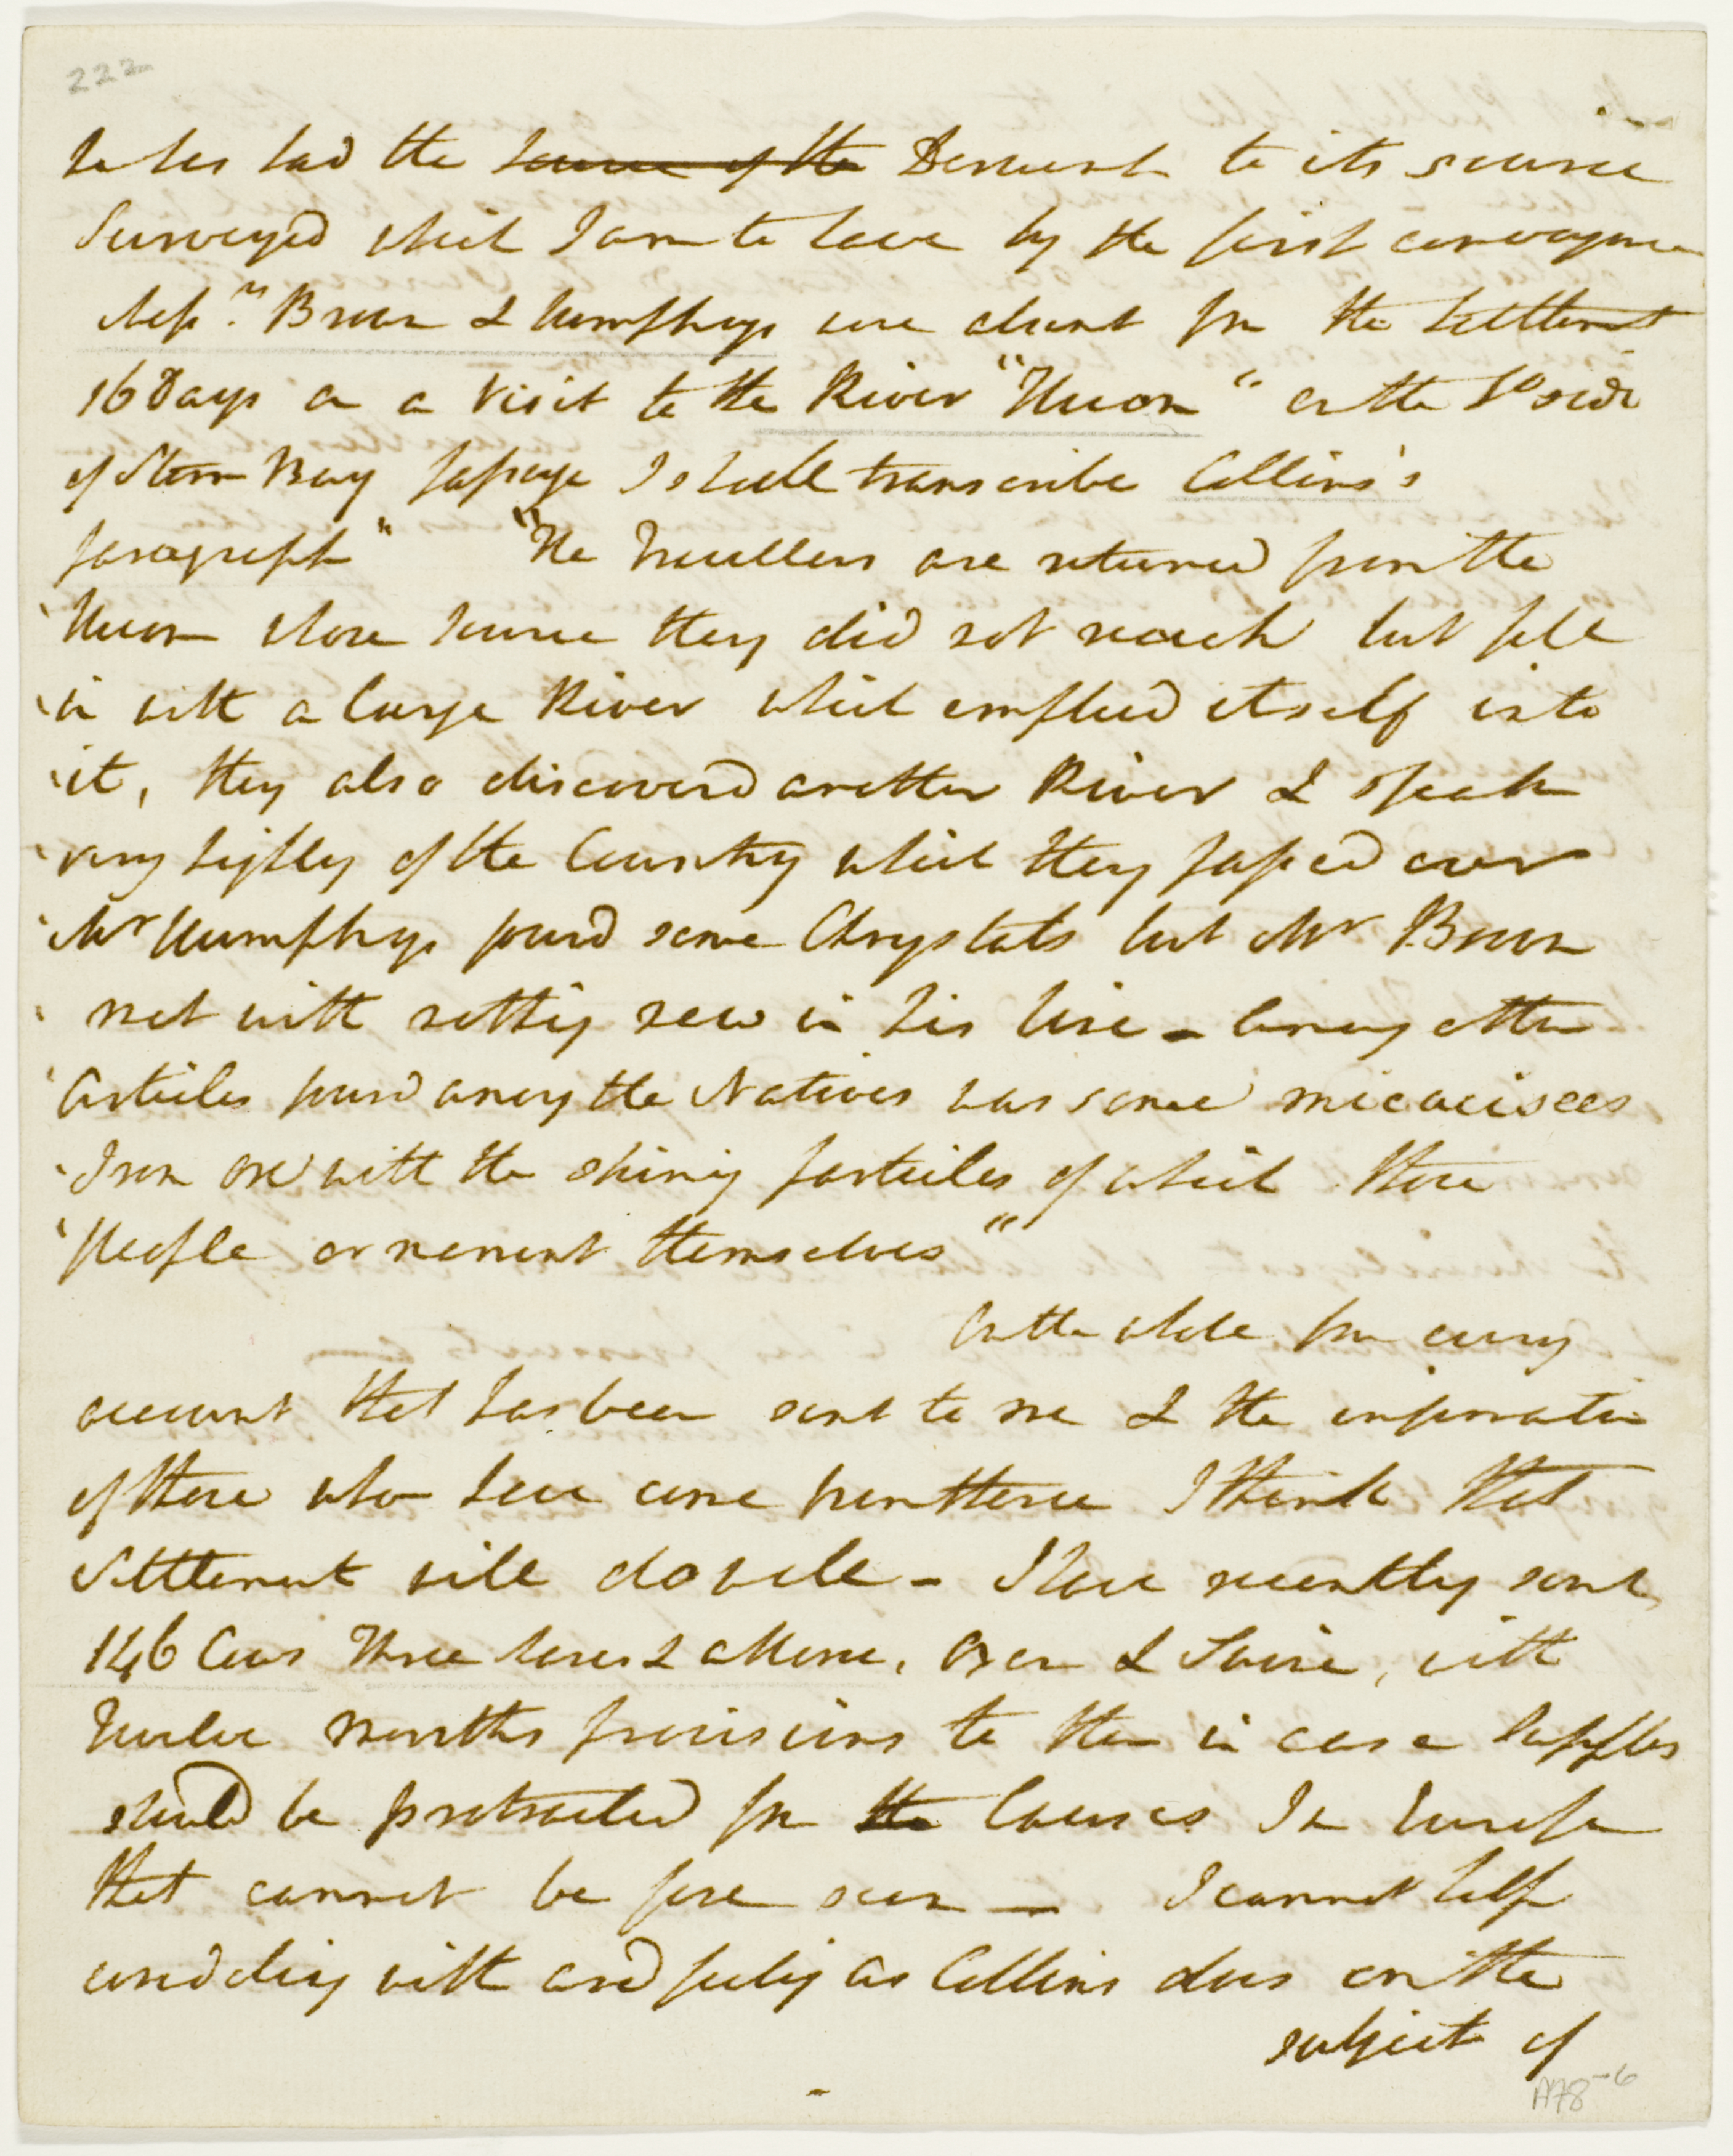 222
he has had the source of the Derwent to its source
Surveyed which I am to have by the first conveyance
Mess.rs Brown & Humphrys were absent from the Settlement
16 Days on a Visit to the River "Huon" on the So side
of Storm Bay passage I shall transcribe Collins's
paragraph" "The Travellers are returned from the
"Huon whose source they did not reach but fell
"in with a large River which emptied itself into
"it, they also discovered another River & speak
"very highly of the Country which they passed over
"Mr Humphrys found some Chrystals but Mr Brown
"met with nothing new in his line - among other
"Articles found among the Natives was some micacisces
"Iron ore with the shining particles of which these
"People ornament themselves"
On the whole from every
account that has been sent to me & the information
of those who have come from thence I think that
Settlement will do well - I have recently sent
146 Cows Three horses & a Mare, Oxen & Swine, with
Twelve months provisions to them in case Supplies
should be protracted from the Causes In Europe
that cannot be fore seen — I cannot help
condoling with and feeling as Collins does on the
subject of
A78-6